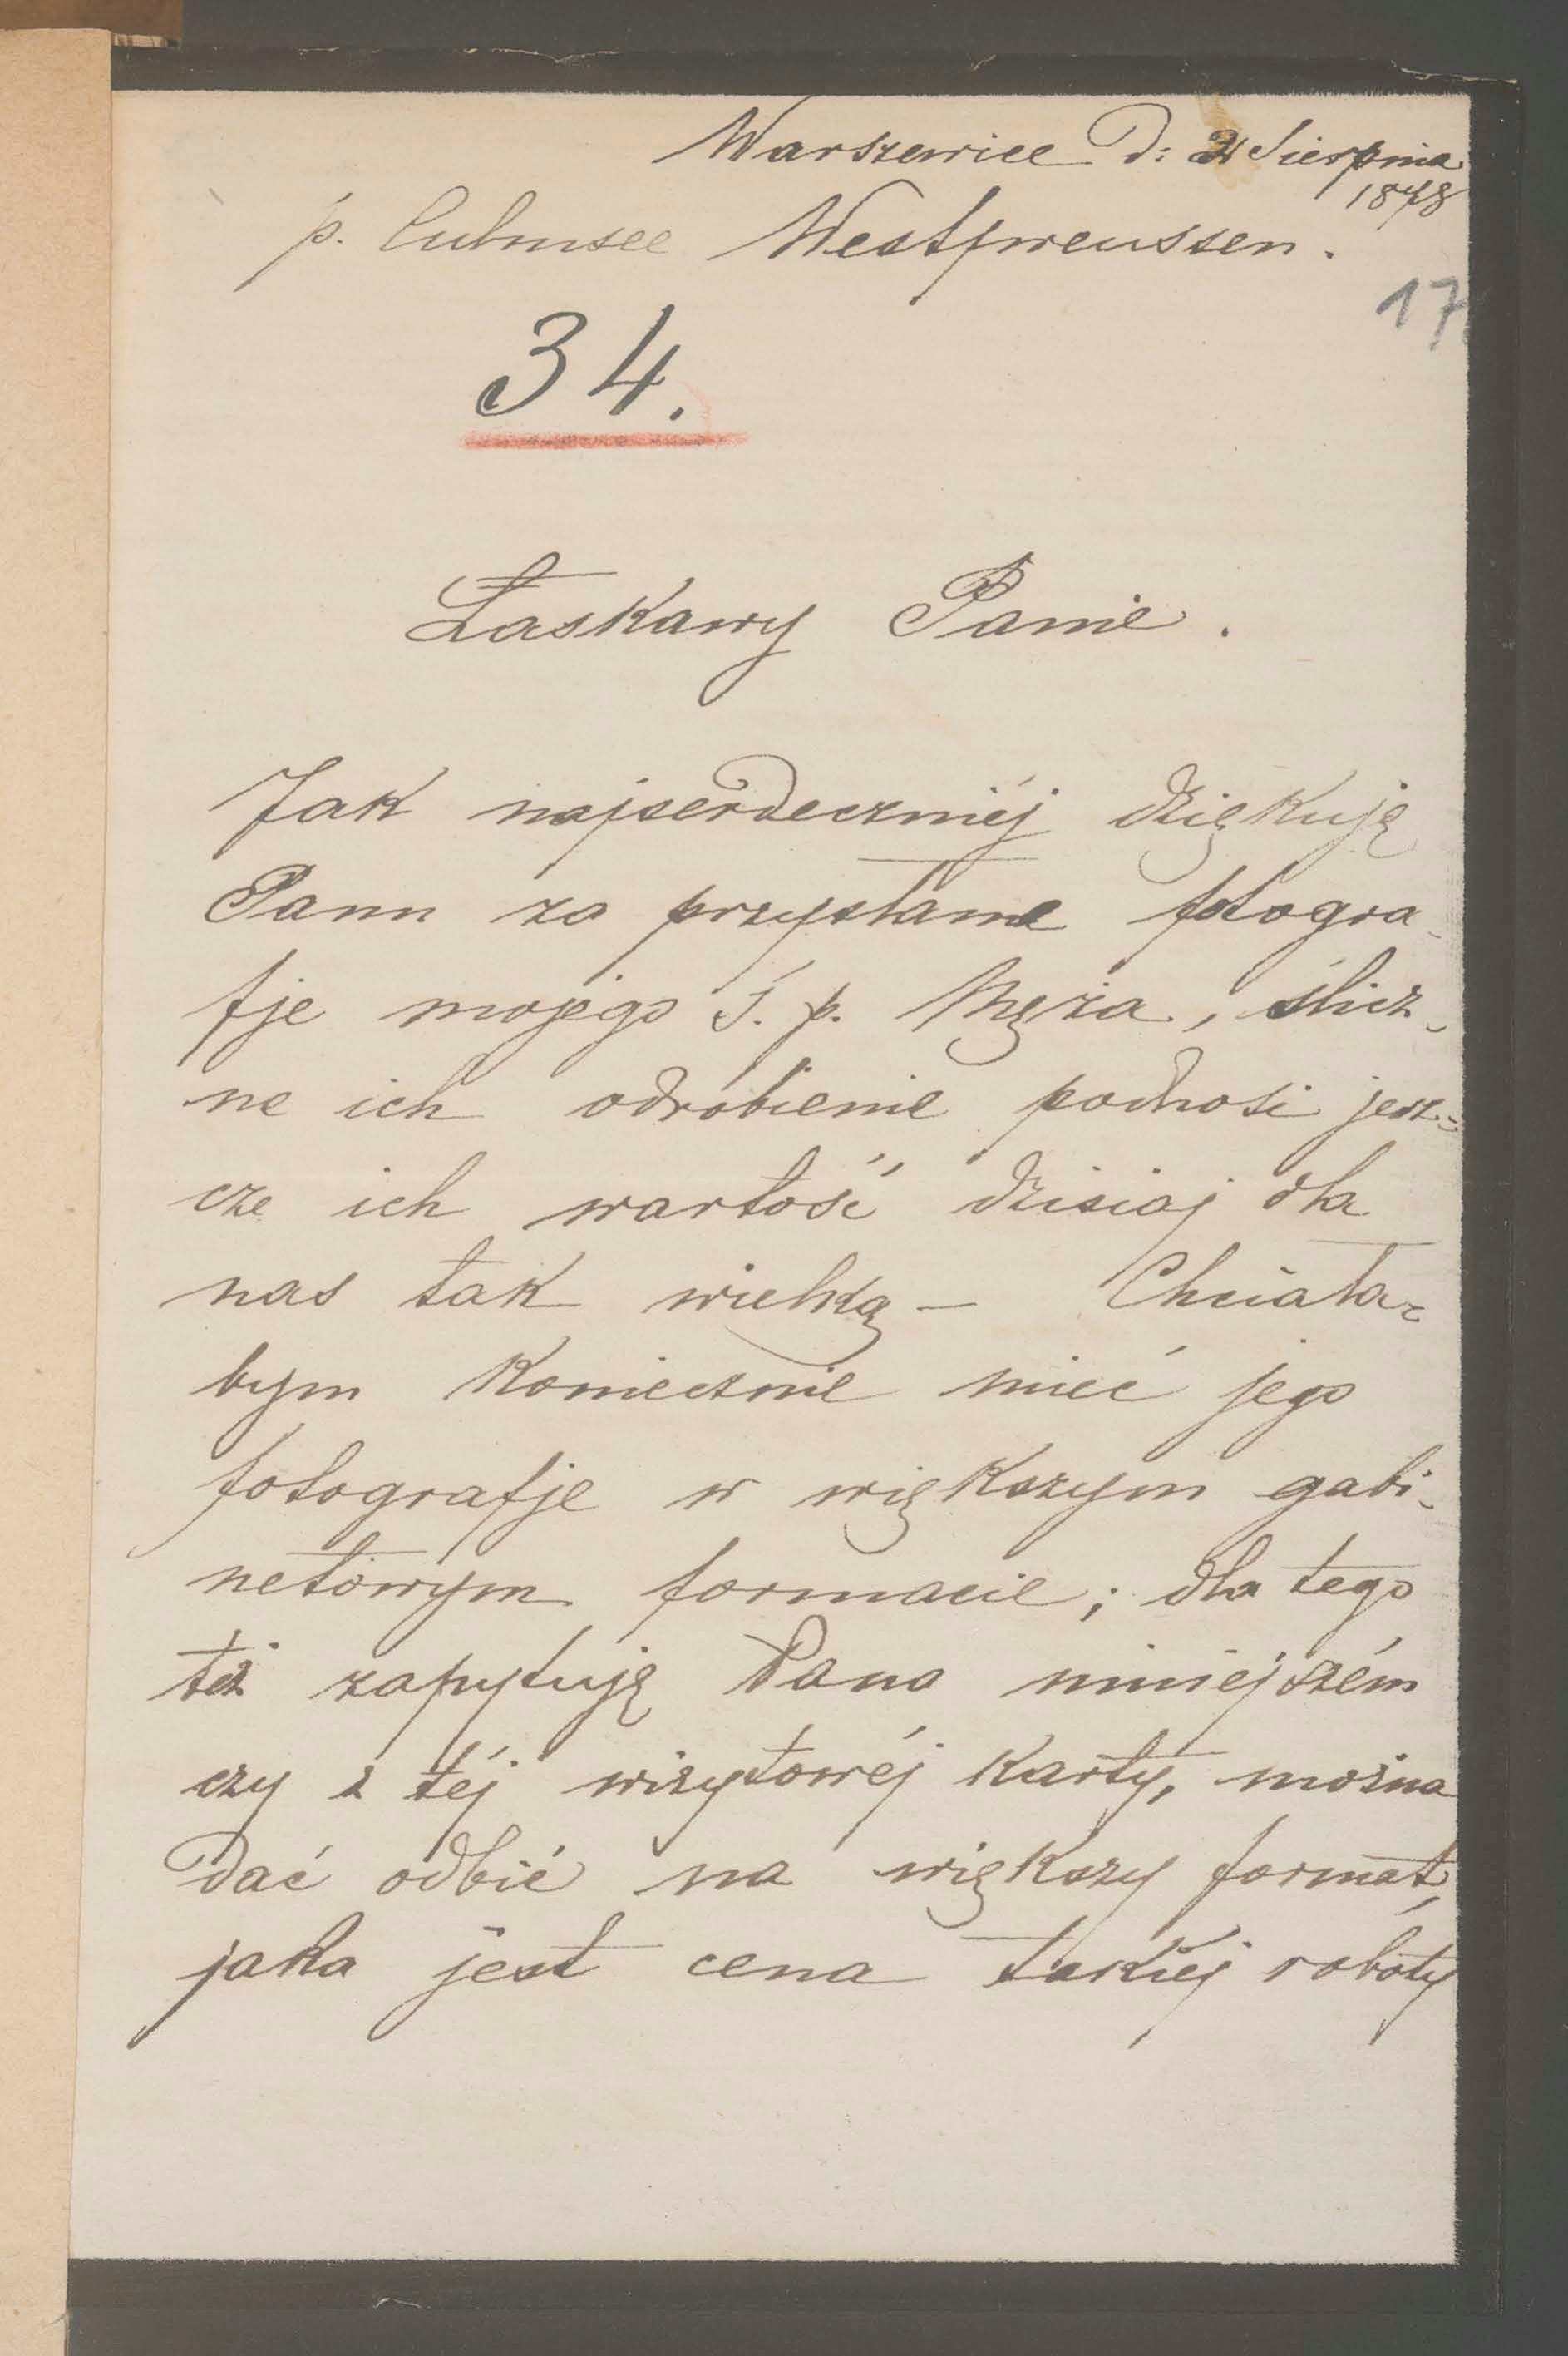 Warszewice d: 21 Sierpnia
1878
p. Culmsee Westpreussen.
17
34.
Łaskawy Panie.
Jak najserdeczniéj dziękuję
Panu za przysłane fotogra-
fje mojego ś. p. Męża, ślicz-
ne ich odrobienie podnosi jesz-
cze ich wartość dzisiaj dla
nas tak wielką — Chciała-
bym koniecznie mieć jego
fotografje w większym gabi-
netowym formacie; dla tego
też zapytuję Pana niniejszém
czy z téj wizytowéj karty, można
dać odbić na większy format,
jaka jest cena takiéj roboty